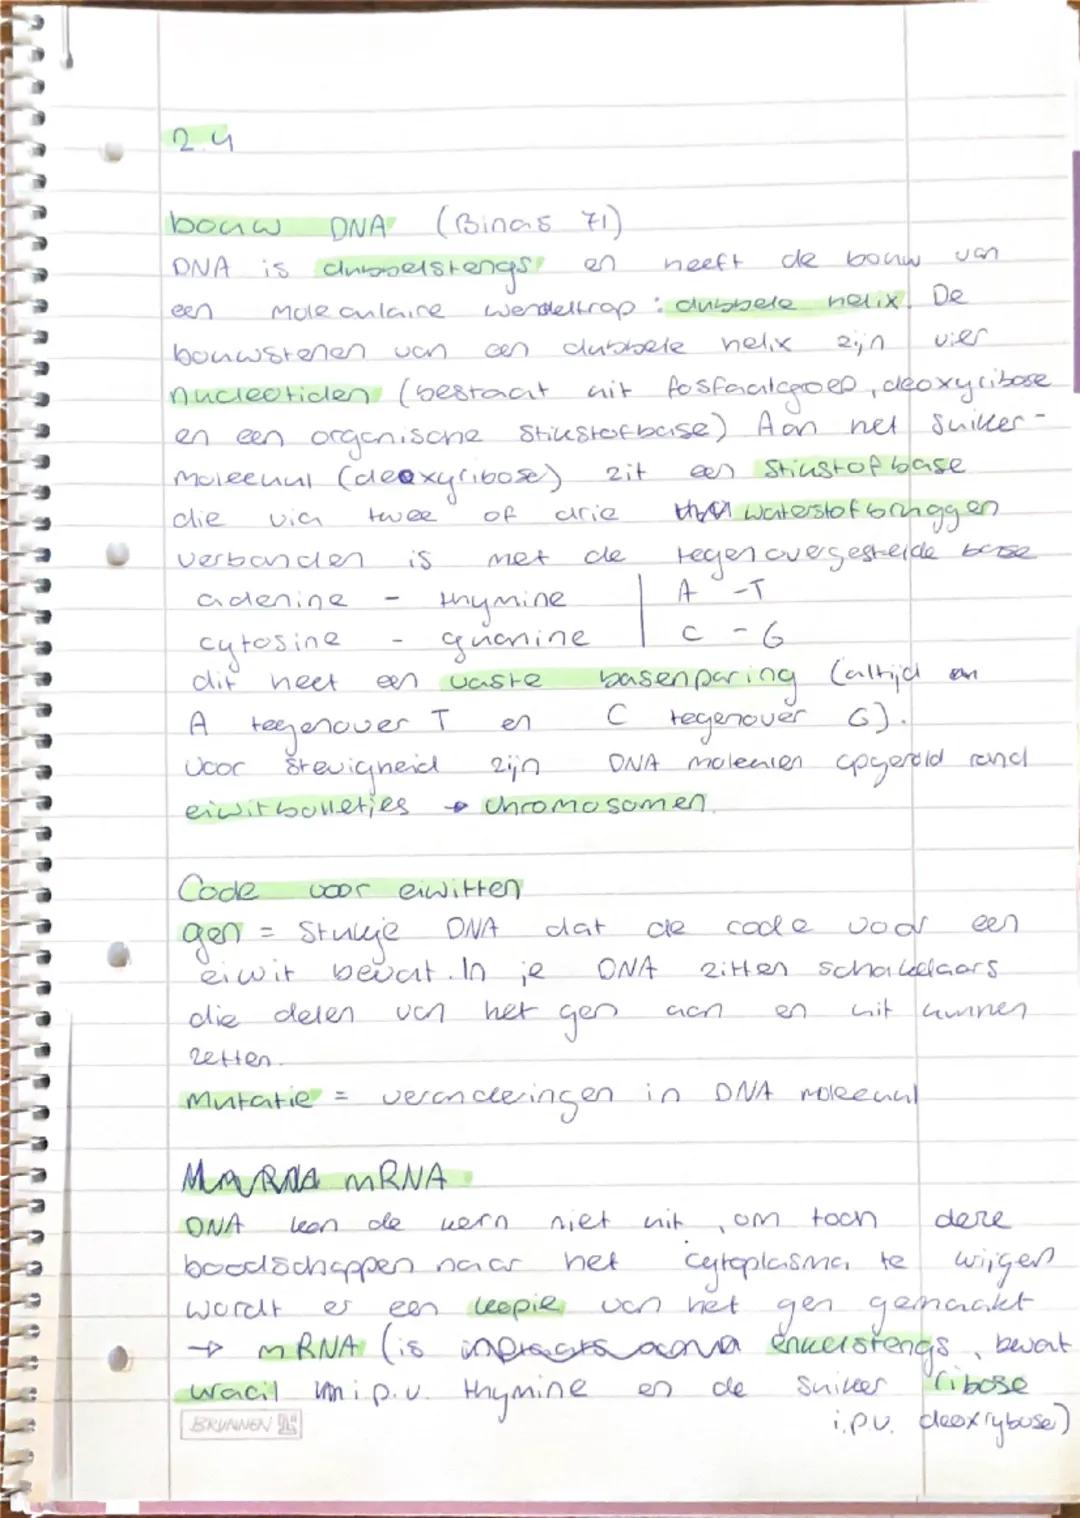 2.4
bouw DNA (Binas 71)
DNA is dubbelstengs en heeft de bouw van
een moleculaire wendeltrap : dubbele helix. De
bouwstenen van een dubbele helix zijn vier
nucleotiden (bestaat uit fosfaatgroep, deoxyribose
en een organische stikstofbase) Aan het suiker-
molecuul (deoxyribose) zit een stikstofbase
die via twee of drie waterstofbruggen
verbonden is met de tegenovergestelde base
adenine - thymine | A - T
cytosine - guanine | C - G
dit heet een vaste basenparing (altijd an
A tegenover T en C tegenover G).
voor stevigheid zijn DNA moleculen opgerold rond
eiwitbolletjes → chromosomen.
Code voor eiwitten
gen = stukje DNA dat de code voor een
eiwit bevat. In je DNA zitten schakelaars
die delen van het gen aan en uit kunnen
zetten.
Mutatie = veranderingen in DNA molecuul
mRNA
DNA kan de kern niet uit, om toch deze
boodschappen naar het cytoplasma te krijgen
wordt er een kopie van het gen gemaakt
→ mRNA (is enkelstengs, bevat
uracil i.p.v. thymine en de suiker ribose
i.p.v. deoxrybose)
BRUNNEN